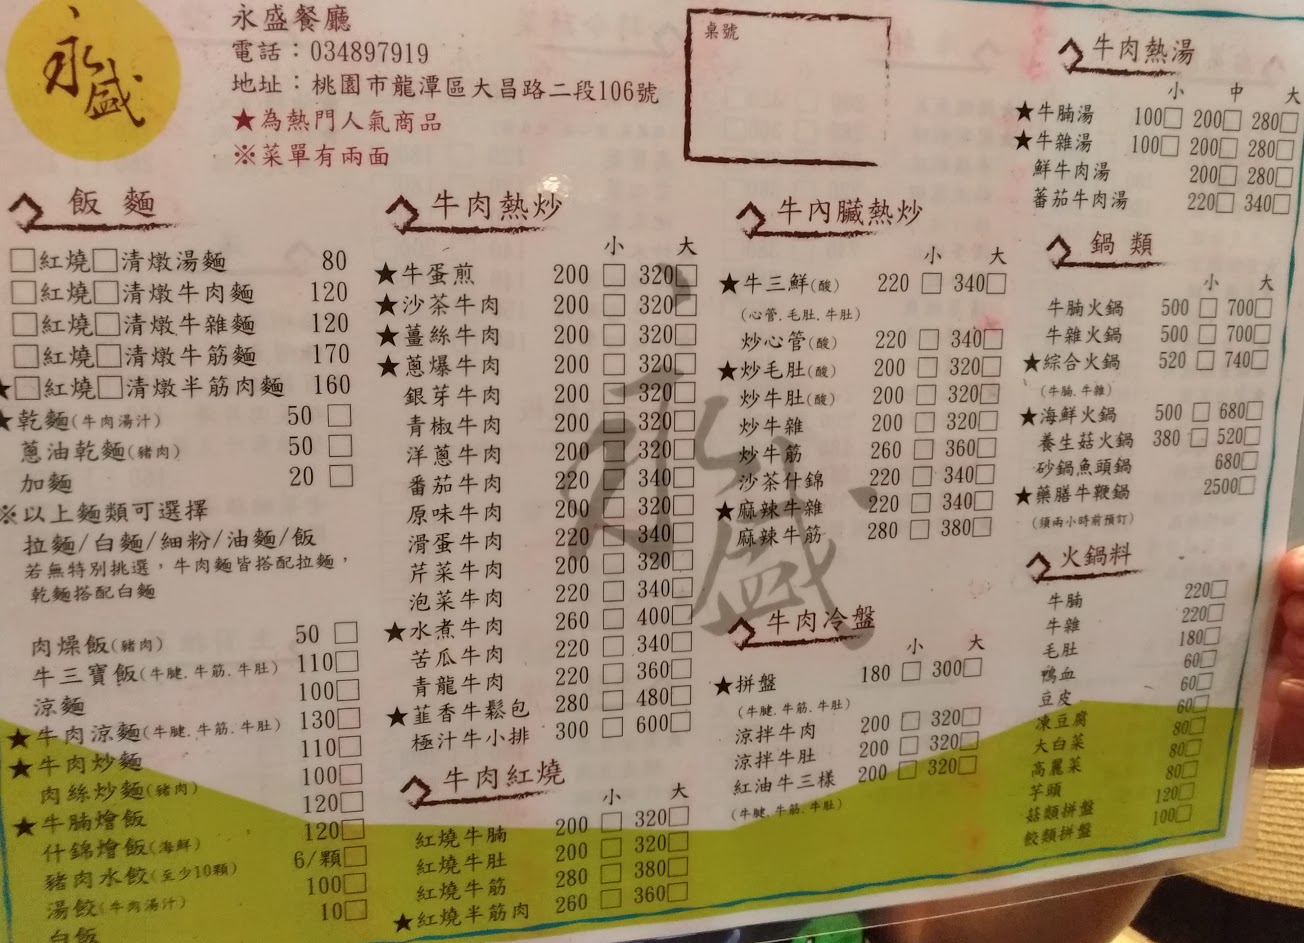 永盛
永盛餐廳
電話：034897919
地址：桃園市龍潭區大昌路二段106號
★為熱門人氣商品
※菜單有兩面
桌號
飯麵
□紅燒□清燉湯麵 80
□紅燒□清燉牛肉麵 120
□紅燒□清燉牛雜麵 120
□紅燒□清燉牛筋麵 170
★□紅燒□清燉半筋肉麵 160
★乾麵(牛肉湯汁) 50 □
蔥油乾麵(豬肉) 50 □
加麵 20 □
※以上麵類可選擇
拉麵/白麵/細粉/油麵/飯
若無特別挑選，牛肉麵皆搭配拉麵，
乾麵搭配白麵
肉燥飯(豬肉) 50 □
牛三寶飯(牛腱.牛筋.牛肚) 110□
涼麵 100□
★牛肉涼麵(牛腱.牛筋.牛肚) 130□
★牛肉炒麵 110□
肉絲炒麵(豬肉) 100□
★牛腩燴飯 120□
什錦燴飯(海鮮) 120□
豬肉水餃(至少10顆) 6/顆□
湯餃(牛肉湯汁) 100□
白飯 10□
牛肉熱炒
小 大
★牛蛋煎 200 □ 320□
★沙茶牛肉 200 □ 320□
★薑絲牛肉 200 □ 320□
★蔥爆牛肉 200 □ 320□
銀芽牛肉 200 □ 320□
青椒牛肉 200 □ 320□
洋蔥牛肉 200 □ 320□
番茄牛肉 220 □ 340□
原味牛肉 200 □ 320□
滑蛋牛肉 220 □ 340□
芹菜牛肉 200 □ 320□
泡菜牛肉 220 □ 340□
★水煮牛肉 260 □ 400□
苦瓜牛肉 220 □ 340□
青龍牛肉 220 □ 360□
★韮香牛鬆包 280 □ 480□
極汁牛小排 300 □ 600□
牛肉紅燒
小 大
紅燒牛腩 200 □ 320□
紅燒牛肚 200 □ 320□
紅燒牛筋 280 □ 380□
★紅燒半筋肉 260 □ 360□
牛內臟熱炒
小 大
★牛三鮮(酸) 220 □ 340□
(心管.毛肚.牛肚)
炒心管(酸) 220 □ 340□
★炒毛肚(酸) 200 □ 320□
炒牛肚(酸) 200 □ 320□
炒牛雜 200 □ 320□
炒牛筋 260 □ 360□
沙茶什錦 220 □ 340□
★麻辣牛雜 220 □ 340□
麻辣牛筋 280 □ 380□
永盛
牛肉冷盤
小 大
★拼盤 180 □ 300□
(牛腱.牛筋.牛肚)
涼拌牛肉 200 □ 320□
涼拌牛肚 200 □ 320□
紅油牛三樣 200 □ 320□
(牛腱.牛筋.牛肚)
牛肉熱湯
小 中 大
★牛腩湯 100□ 200□ 280□
★牛雜湯 100□ 200□ 280□
鮮牛肉湯 200□ 280□
蕃茄牛肉湯 220□ 340□
鍋類
小 大
牛腩火鍋 500 □ 700□
牛雜火鍋 500 □ 700□
★綜合火鍋 520 □ 740□
(牛腩.牛雜)
★海鮮火鍋 500 □ 680□
養生菇火鍋 380 □ 520□
砂鍋魚頭鍋 680□
★藥膳牛鞭鍋 2500□
(須兩小時前預訂)
火鍋料
牛腩 220□
牛雜 220□
毛肚 180□
鴨血 60□
豆皮 60□
凍豆腐 60□
大白菜 80□
高麗菜 80□
芋頭 80□
菇類拼盤 120□
餃類拼盤 100□